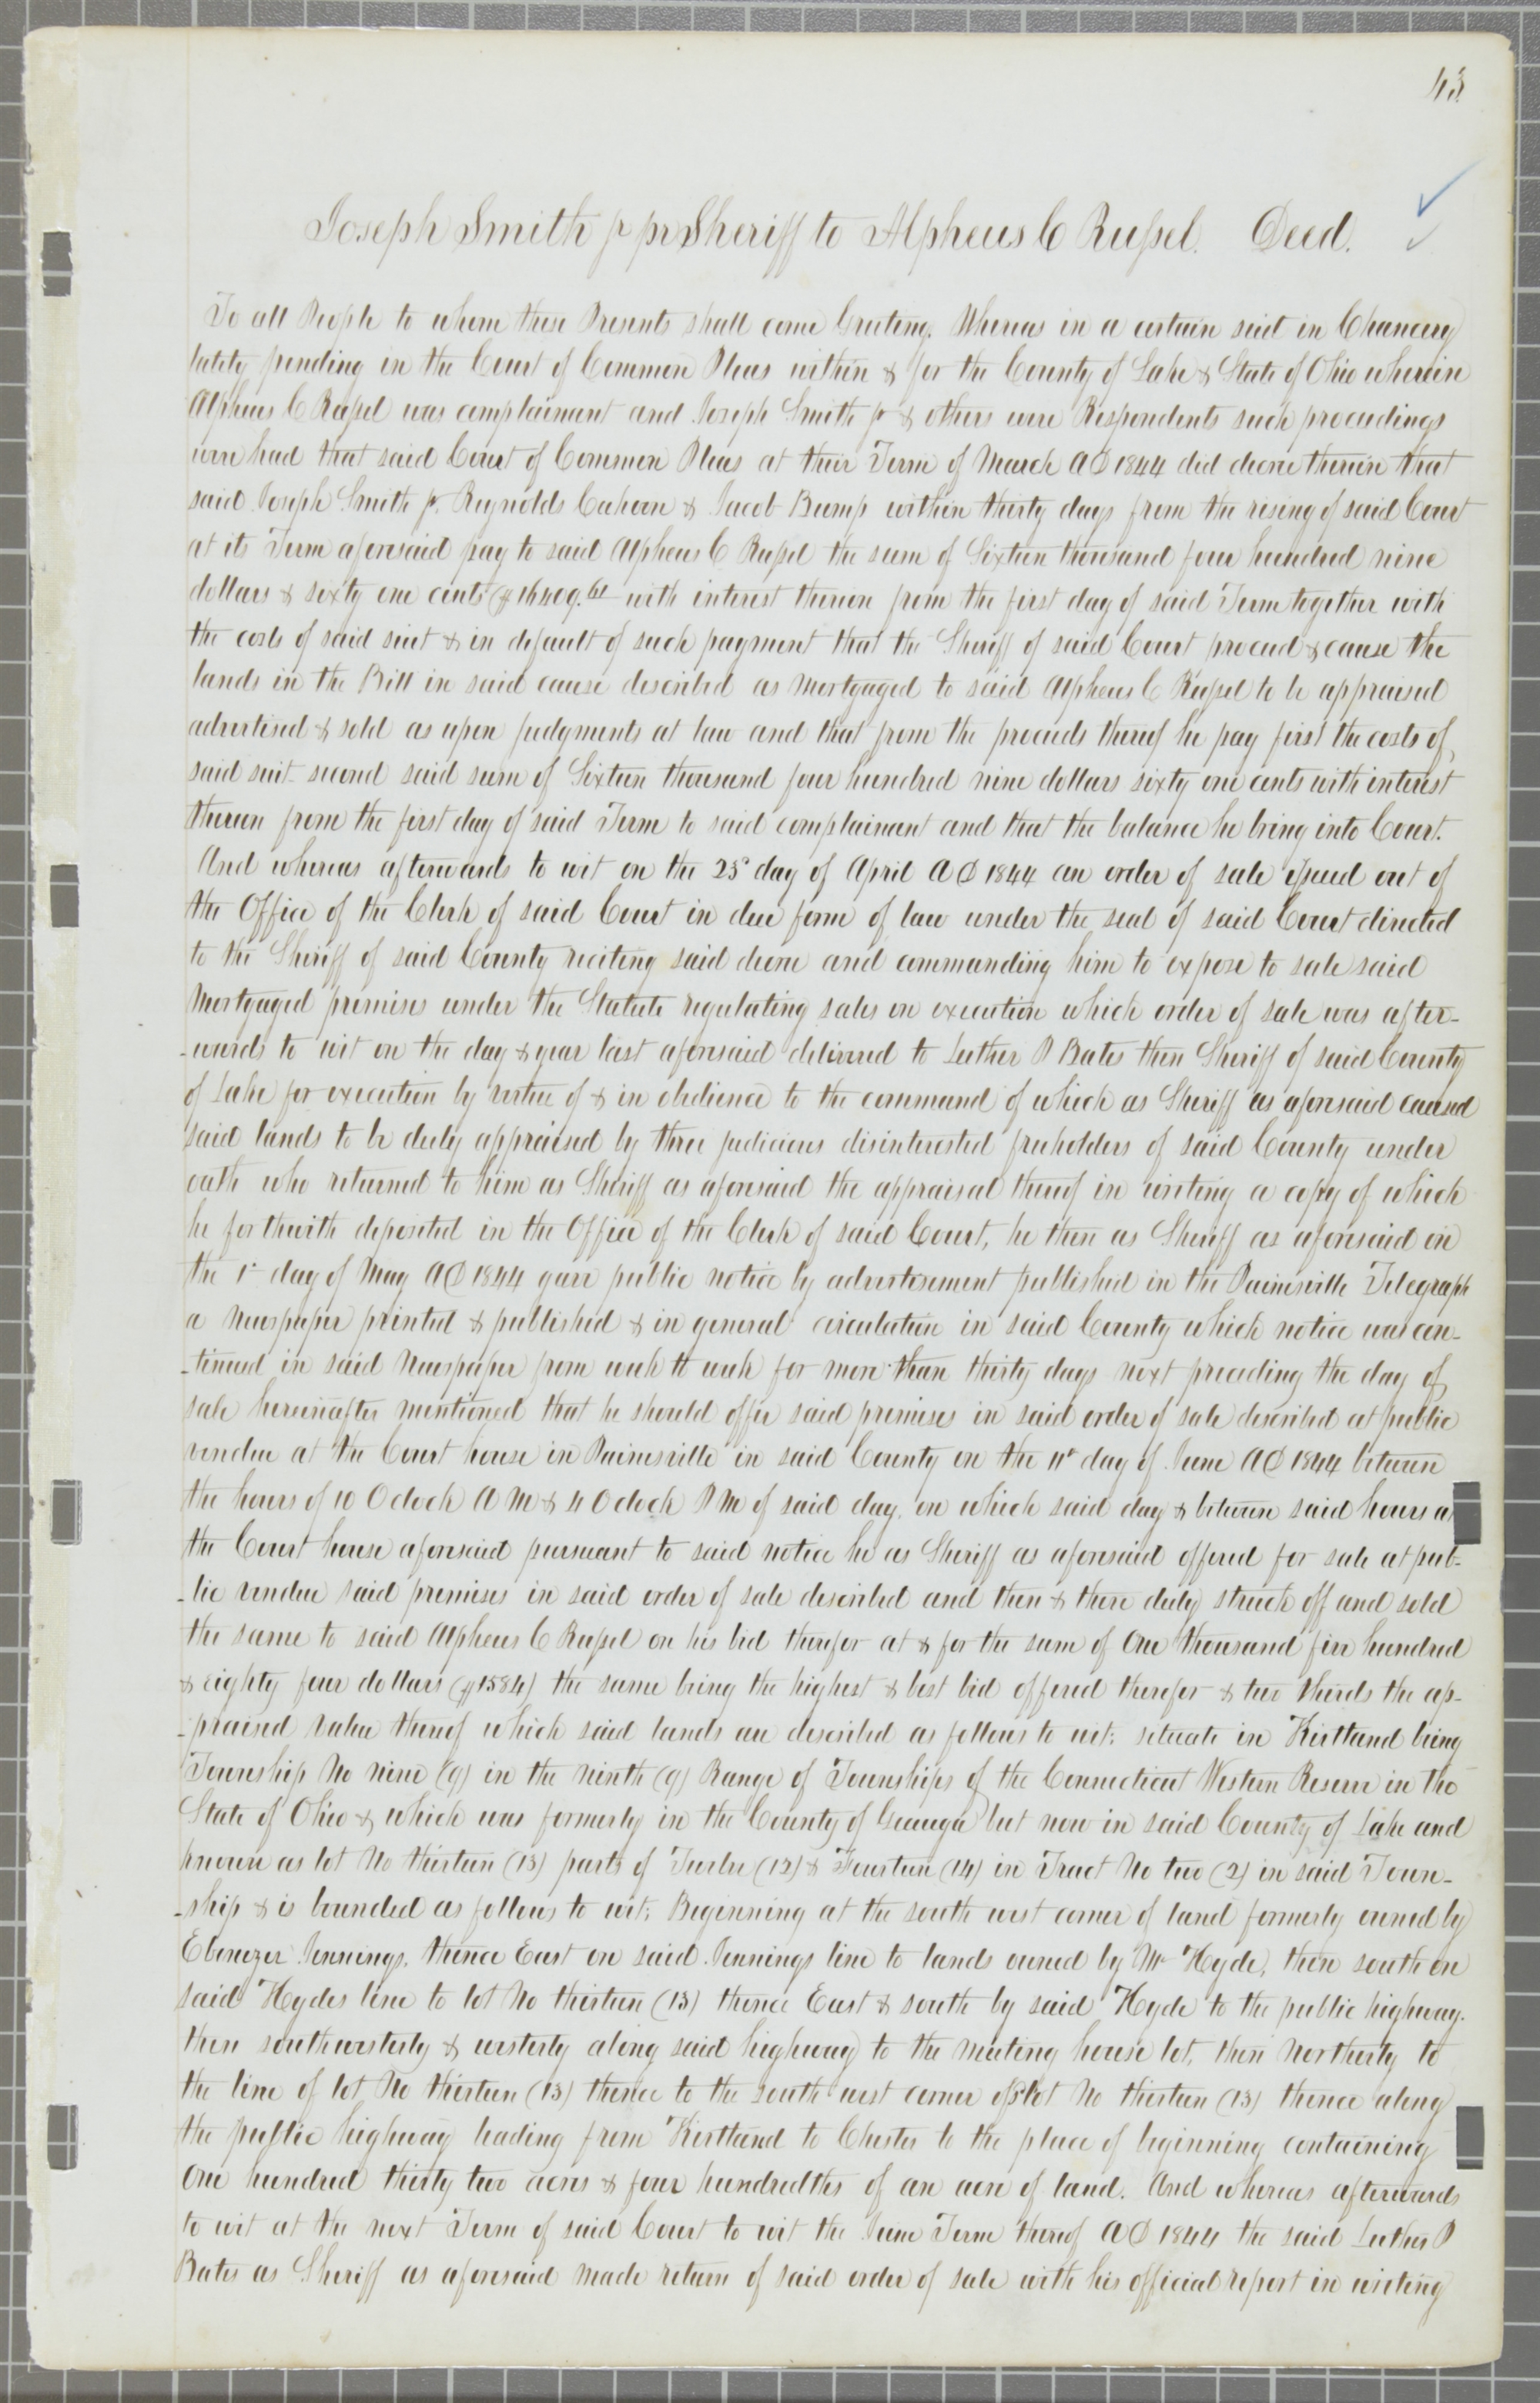 43
Joseph Smith jr pr Sheriff to Alpheus C Russel. Deed.
To all People to whom these Presents shall come Greeting. Whereas in a certain suit in Chancery
lately pending in the Court of Common Pleas within & for the County of Lake & State of Ohio wherein
Alpheus C Russel was complainant and Joseph Smith jr & others were Respondents such proceedings
were had that said Court of Common Pleas at their Term of March AD 1844 did decree therein that
said Joseph Smith jr. Reynolds Cahoon & Jacob Bump within thirty days from the rising of said Court
at its Term aforesaid pay to said Alpheus C Russel the sum of Sixteen thousand four hundred nine
dollars & sixty one cents ($16409.61 with interest thereon from the first day of said Term together with
the costs of said suit & in default of such payment that the Sheriff of said Court proceed & cause the
lands in the Bill in said cause described as Mortgaged to said Alpheus C Russel to be appraised
advertised & sold as upon judgments at law and that from the proceeds thereof he pay first the costs of
said suit second said sum of Sixteen thousand four hundred nine dollars sixty one cents with interest
thereon from the first day of said Term to said complainant and that the balance he bring into Court.
And whereas afterwards to wit on the 25th day of April AD 1844 an order of sale issued out of
the Office of the Clerk of said Court in due form of law under the seal of said Court directed
to the Sheriff of said County reciting said decree and commanding him to expose to sale said
Mortgaged premises under the Statute regulating sales on execution which order of sale was after-
-wards to wit on the day & year last aforesaid delivered to Luther P Bates then Sheriff of said County
of Lake for execution by virtue of & in obedience to the command of which as Sheriff as aforesaid caused
said lands to be duly appraised by three judicious disinterested freeholders of said County under
oath who returned to him as Sheriff as aforesaid the appraisal thereof in writing a copy of which
he forthwith deposited in the Office of the Clerk of said Court, he then as Sheriff as aforesaid on
the 1st day of May AD 1844 gave public notice by advertisement published in the Painesville Telegraph
a Newspaper printed & published & in general circulation in said County which notice was con-
-tinued in said Newspaper from week to week for more than thirty days next preceding the day of
sale hereinafter mentioned that he should offer said premises in said order of sale described at public
vendue at the Court house in Painesville in said County on the 11th day of June AD 1844 between
the hours of 10 O clock A M & 4 O clock P M of said day. on which said day & between said hours at
the Court house aforesaid pursuant to said notice he as Sheriff as aforesaid offered for sale at pub-
-lic vendue said premises in said order of sale described and then & there duly struck off and sold
the same to said Alpheus C Russel on his bid therefor at & for the sum of One thousand five hundred
& eighty four dollars ($1584) the same being the highest & best bid offered therefor & two thirds the ap-
-praised value thereof which said lands are described as follows to wit; situate in Kirtland being
Township No nine (9) in the ninth (9) Range of Townships of the Connecticut Western Reserve in the
State of Ohio & which was formerly in the County of Geauga but now in said County of Lake and
known as lot No thirteen (13) parts of Twelve (12) & Fourteen (14) in Tract No two (2) in said Town-
-ship & is bounded as follows to wit; Beginning at the south west corner of land formerly owned by
Ebenezer Jennings. thence East on said Jennings line to lands owned by Mr Hyde, then south on
said Hydes line to lot No thirteen (13) thence East & south by said Hyde to the public highway.
then southwesterly & westerly along said highway to the meeting house lot, then Northerly to
the line of lot No thirteen (13) thence to the south west corner of lot No thirteen (13) thence along
the public highway leading from Kirtland to Chester to the place of beginning containing
One hundred thirty two acres & four hundredths of an acre of land. And whereas afterwards
to wit at the next Term of said Court to wit the June Term thereof AD 1844 the said Luther P
Bates as Sheriff as aforesaid made return of said order of sale with his official report in writing